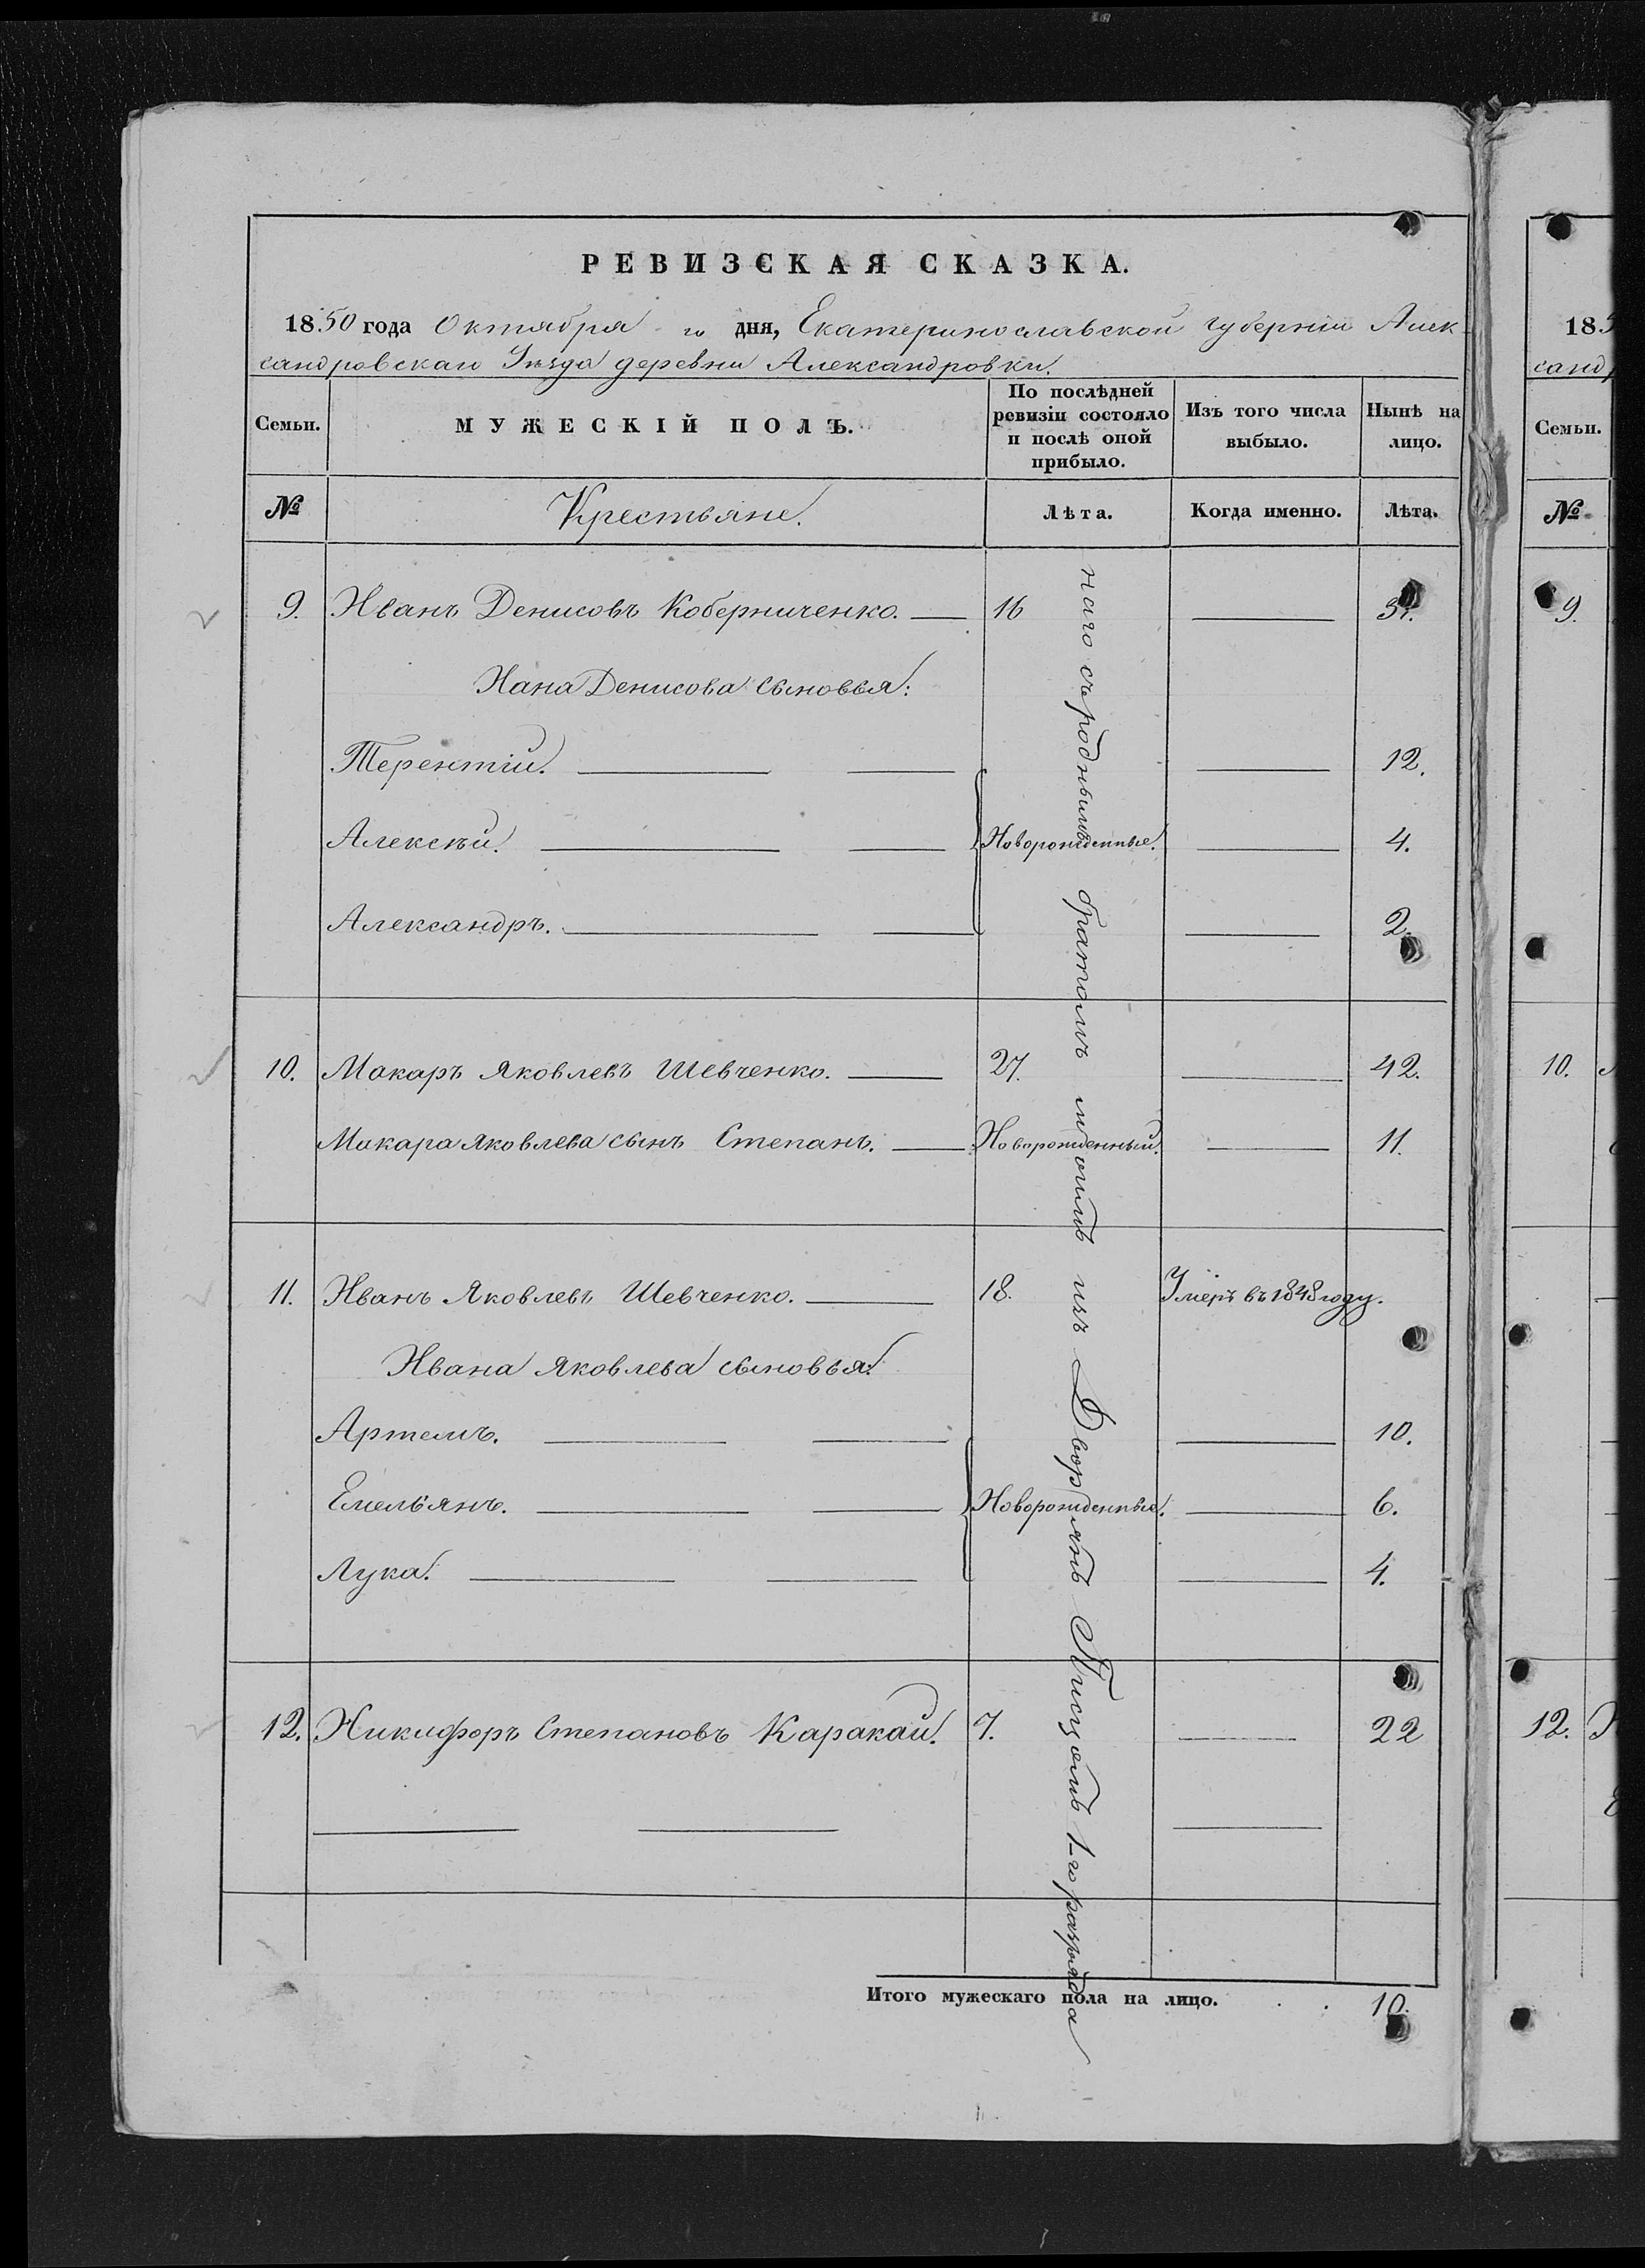 РЕВИЗСКАЯ СКАЗКА.
1850 года Октября го дня, Екатеринославской губерніи Алек
сандровскаго Уѣзда деревни Александровки.
Семьи. МУЖЕСКІЙ ПОЛЪ. По послѣдней ревизіи состояло и послѣ оной прибыло. Изъ того числа выбыло. Нынѣ на лицо.
№ Крестьяне. Лѣта. Когда именно. Лѣта.
9. Иванъ Денисовъ Коберниченко. 16
Ивана Денисова сыновья:
Терентій. 12.
Алексѣй. Новорожденные. 4.
Александръ. 2.
10. Макаръ Яковлевъ Шевченко. 27. 42.
Макара Яковлева сынъ Степанъ. Новорожденный. 11.
11. Иванъ Яковлевъ Шевченко. 18. Умеръ въ 1848 году.
Ивана Яковлева сыновья:
Артемъ. 10.
Емельянъ. Новорожденные. 6.
Лука. 4.
12. Никифоръ Степановъ Каракай. 7. 22
Итого мужескаго пола на лицо. 10.
наго съ роднымъ братомъ моимъ изъ Дворянъ Писцомъ 1-го разряда
18
санд
Семьи.
№
9.
10.
12.